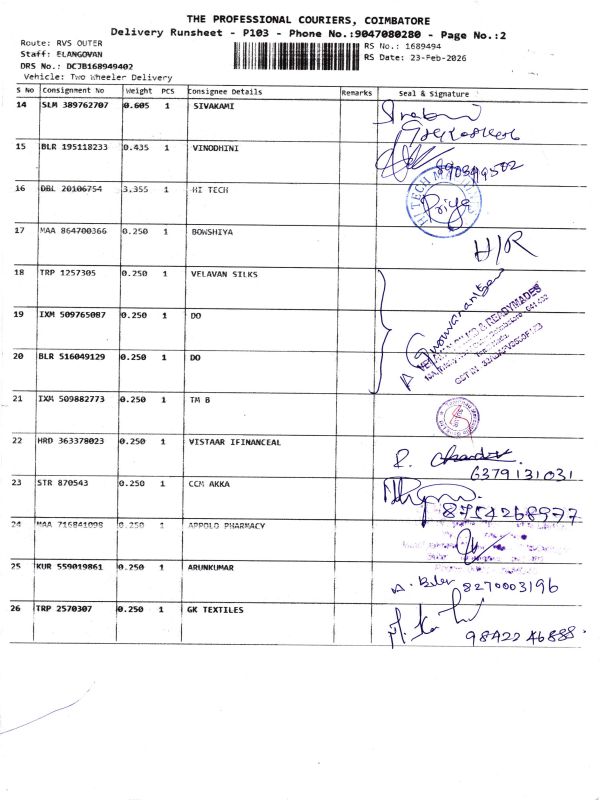 THE PROFESSIONAL COURIERS, COIMBATORE
Delivery Runsheet - P103 - Phone No.:9047080280 - Page No.:2
Route: RVS OUTER
RS No.: 1689494
Staff: ELANGOVAN
RS Date: 23-Feb-2026
DRS No.: DCJB168949402
Vehicle: Two Wheeler Delivery
S No Consignment No Weight PCS Consignee Details Remarks Seal & Signature
14 SLM 389762707 0.605 1 SIVAKAMI
15 BLR 195118233 0.435 1 VINODHINI
16 DBL 20106754 3.355 1 HI TECH
HI TECH
Priya
17 MAA 864700366 0.250 1 BOWSHIYA
H/R
18 TRP 1257305 0.250 1 VELAVAN SILKS
19 IXM 509765087 0.250 1 DO
20 BLR 516049129 0.250 1 DO
21 IXM 509882773 0.250 1 TM B
22 HRD 363378023 0.250 1 VISTAAR IFINANCEAL
6379131031
23 STR 870543 0.250 1 CCM AKKA
8754268977
24 MAA 716841098 0.250 1 APPOLO PHARMACY
25 KUR 559019861 0.250 1 ARUNKUMAR
8270003196
26 TRP 2570307 0.250 1 GK TEXTILES
98422 46888